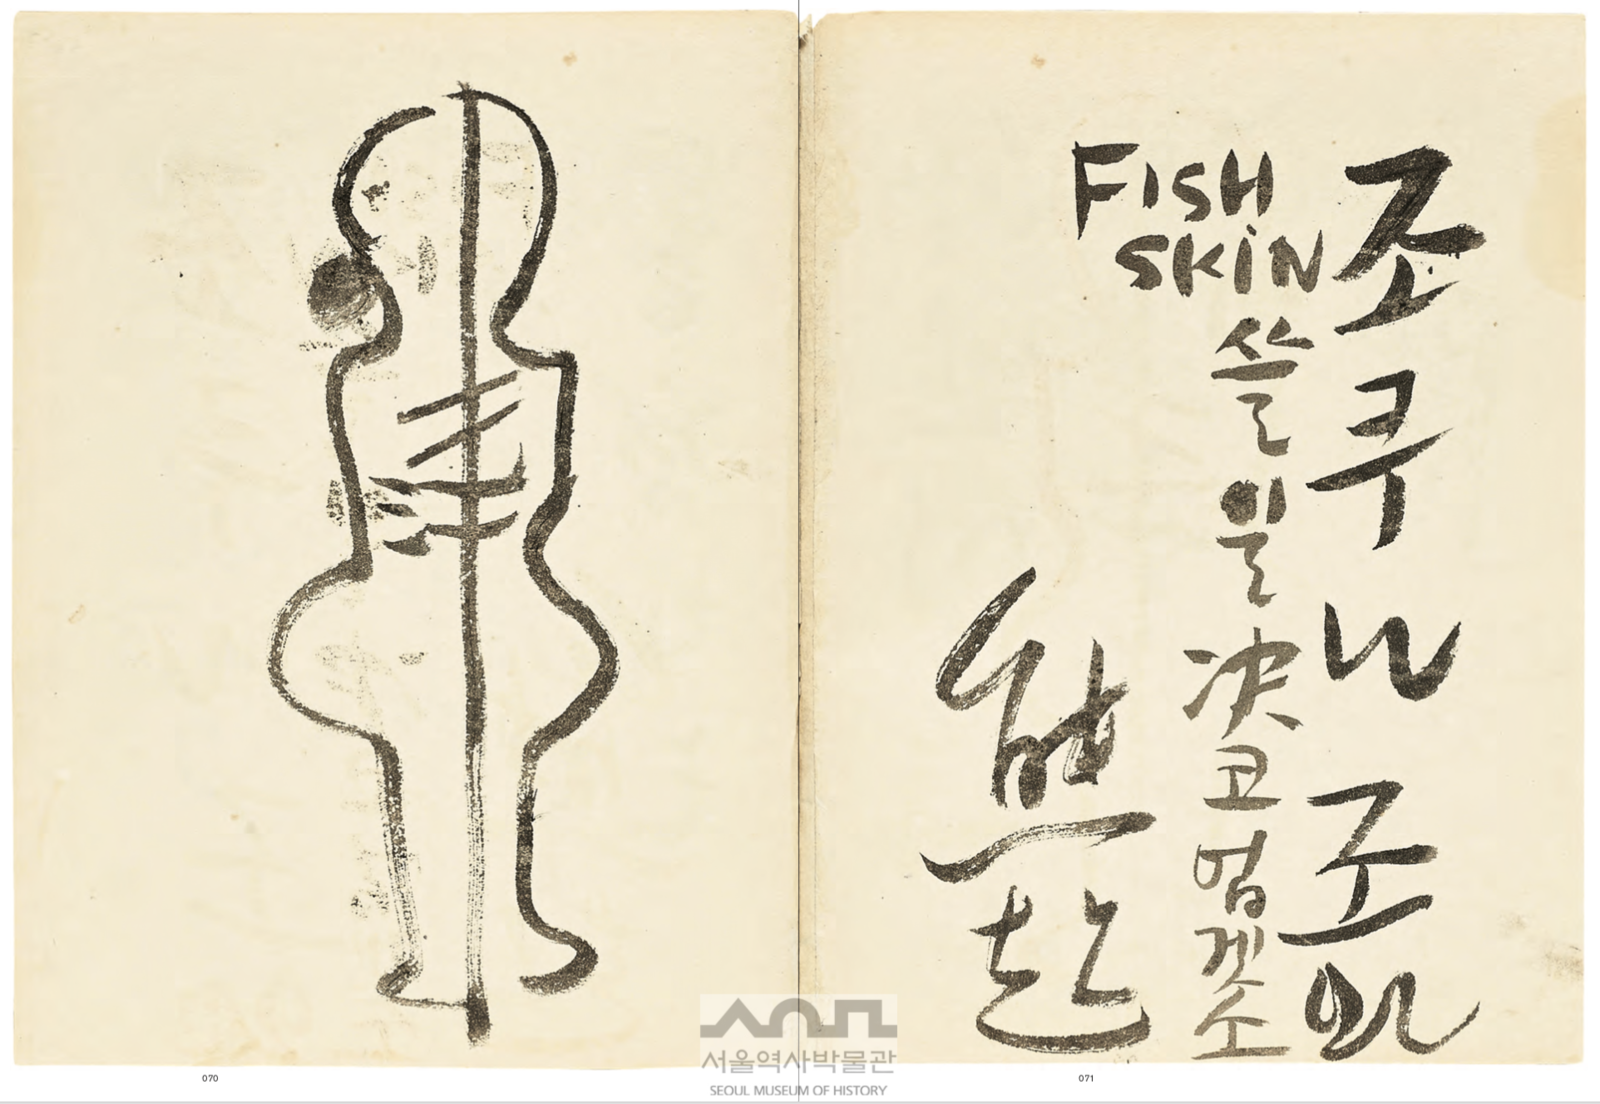 조쿠나 조와
FISH
SKIN
쓸 일 决코 업겟소
070
071
서울역사박물관
SEOUL MUSEUM OF HISTORY